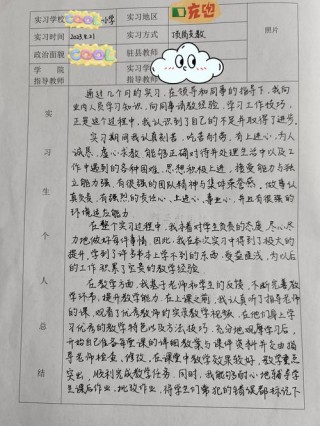 实习学校 小学 实习地区
实习时间 2023.2.21 实习方式 顶岗支教 照片
政治面貌 驻县教师
学院指导教师 实习学
指导教师
实习生个人总结
通过几个月的实习，在领导和同事的指导下，我向
业内人员学习知识，向同事请教经验，学习工作技巧，
正是这个过程中，我认识到了自己的不足并取得了进步。
实习期间我认真刻苦，吃苦耐劳，有上进心，为人
诚恳，虚心求教，能够正确对待并处理生活中以及工
作中遇到的各种困难，思想积极上进，接受能力与独
立能力强，有很强的团队精神与集体荣誉感。做事认
真负责，有强烈的责任心，上进心，事业心，并且有很强的
环境适应能力
在整个实习过程中，我本着对学生负责的态度，尽心尽
力地做好每件事情，因此，我在本次实习中得到了极大的
提升，学到了许多书本上学不到的东西，受益匪浅，为以后
的工作积累了宝贵的教学经验
在教学方面，我基于老师和学生的反馈，不断完善教
学环节，提升教学能力，在上课之前，我认真听了指导老师
的课，观看了优秀教师的实录教学视频，在他们身上学
习优秀的教学特色以及方法技巧，充分地观摩学习后，
开始自己准备每堂课的详细教案与课件资料并交由指
导老师检查，修改，在课堂中教学效果较好，教学重点
突出，顺利完成教学任务，同时，我能够耐心地辅导学
生课后作业，批改作业，将学生们常犯的错误都标记下